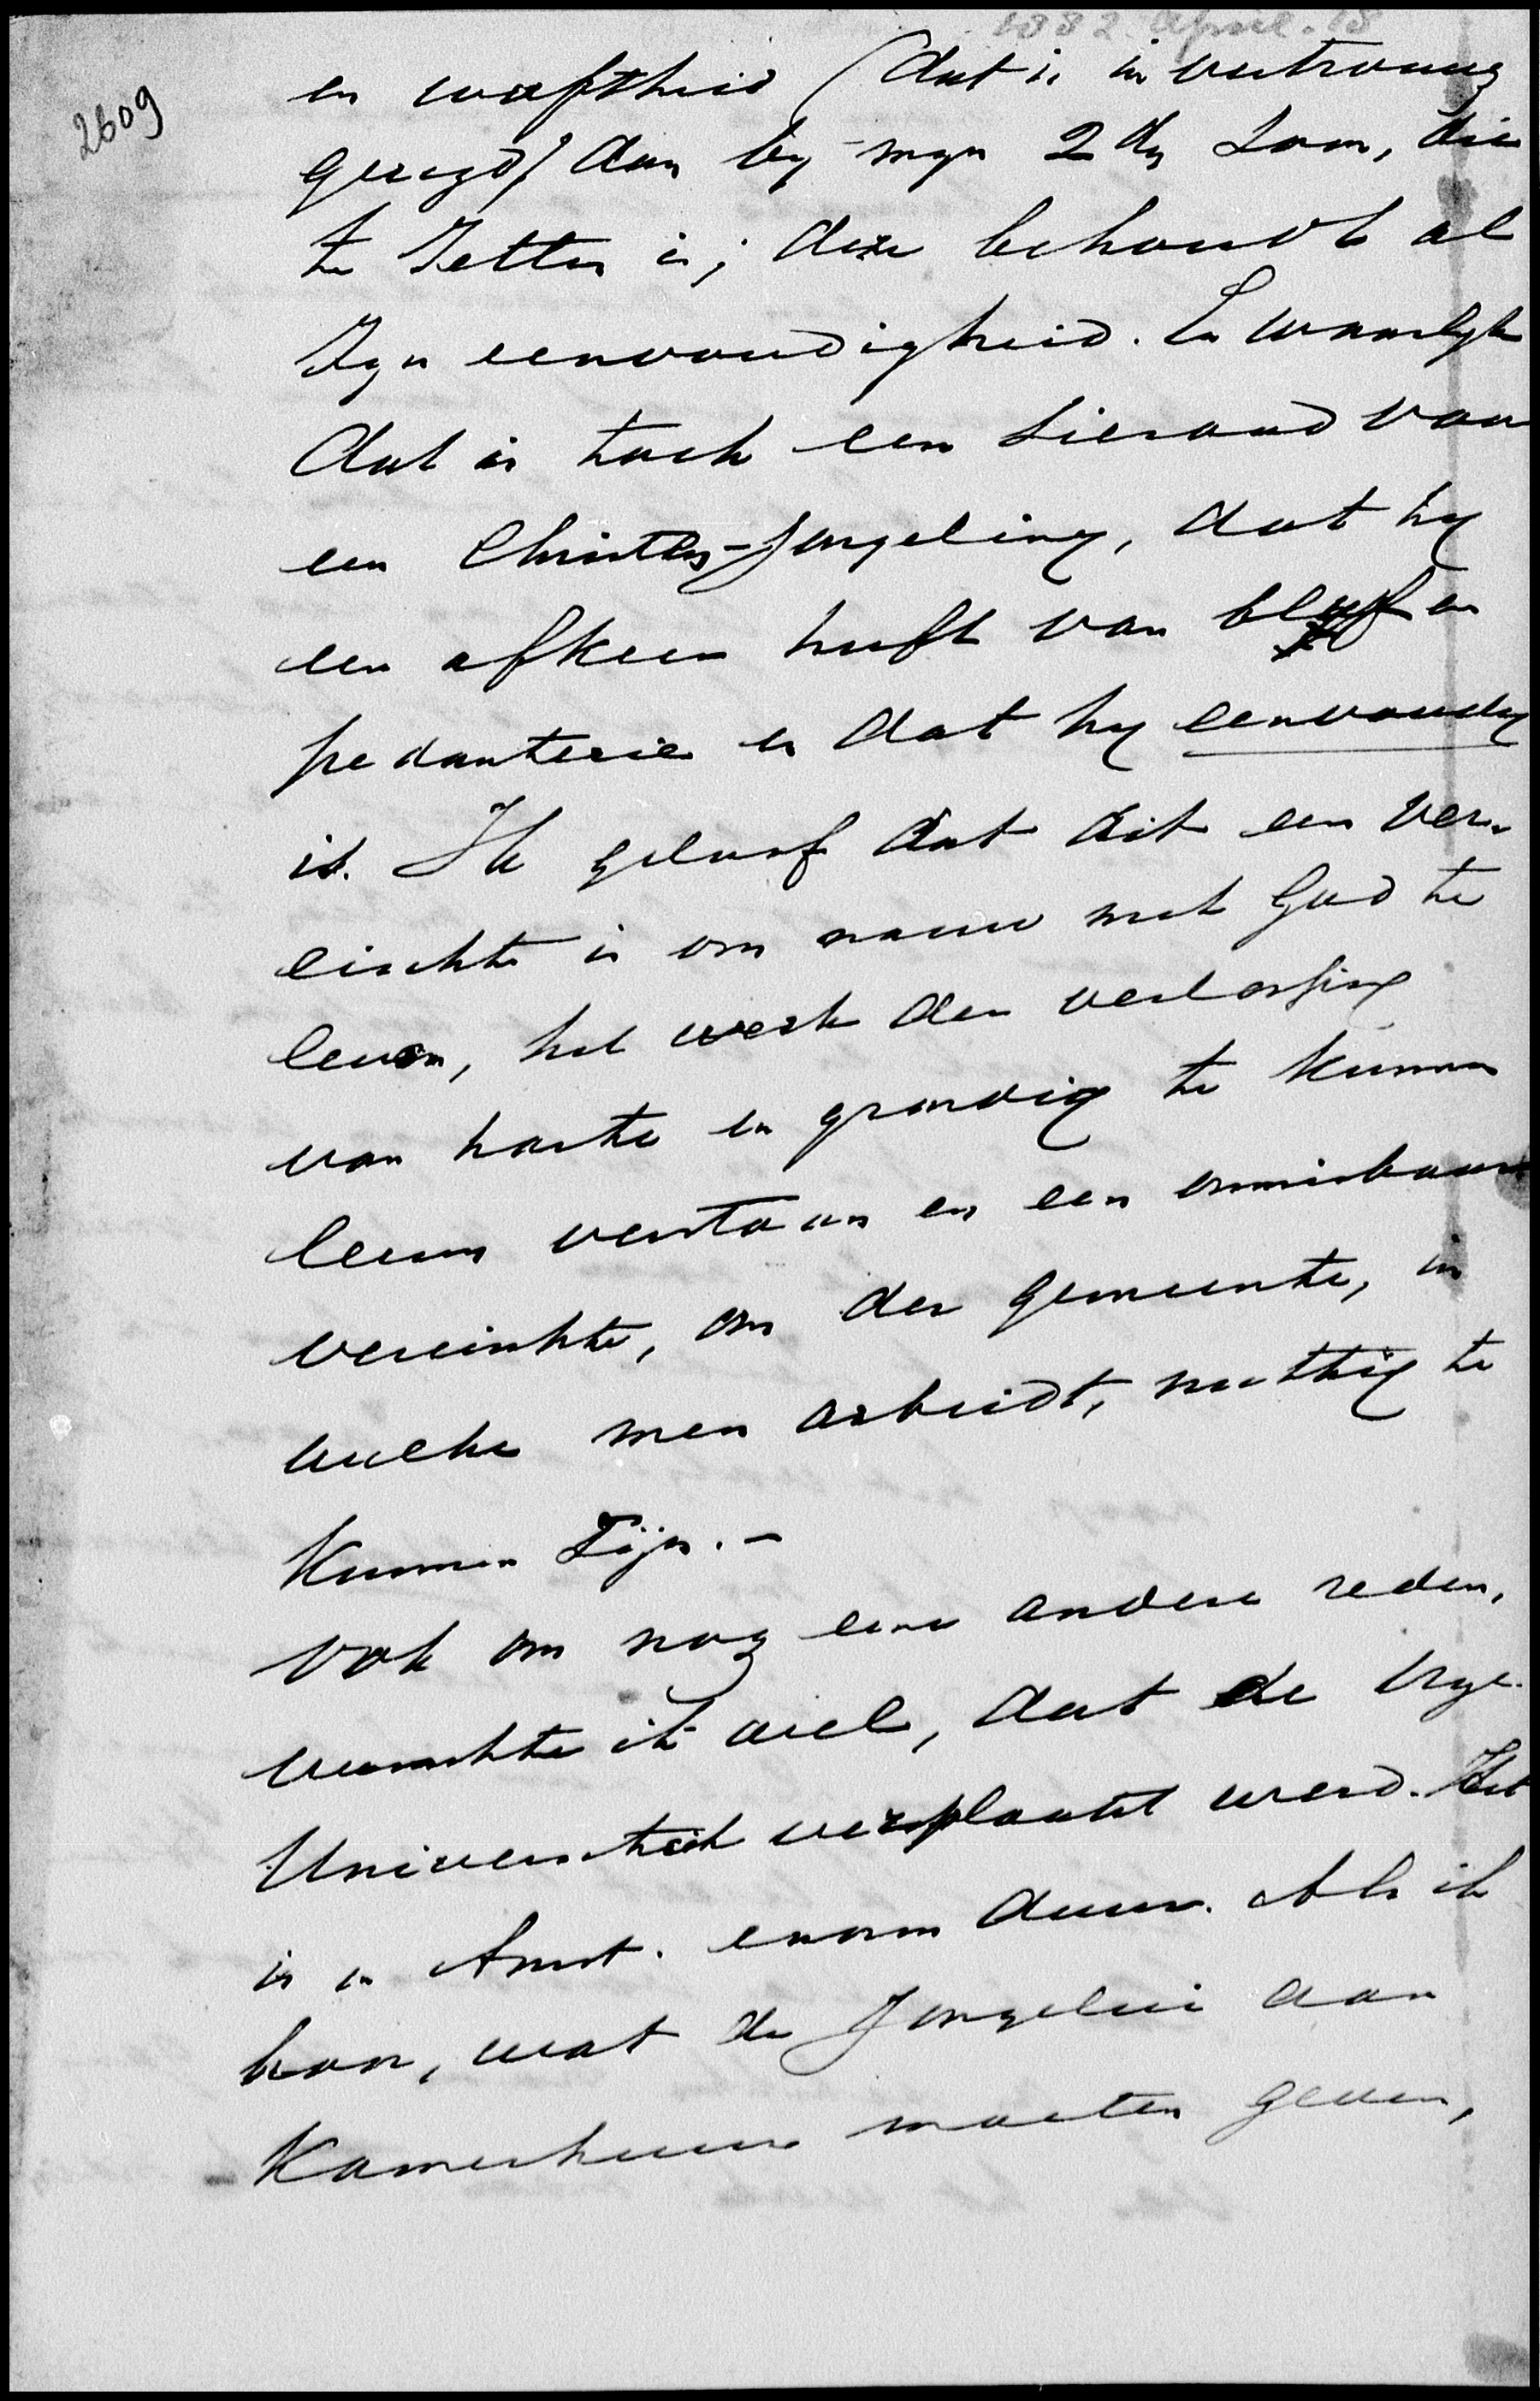 1882 April. 18
2609
en wuftheid (dat is in vertrouwe
gezegd) dan by myn 2dn Zoon, die
te Zetten is; deze behoudt al
Zyn eenvoudigheid. En waarlyk
dat is toch een Sieraad van
een Christen-Jongeling, dat hy
een afkeer heeft van bluf en
pedanterie en dat hy eenvoudig
is. Ik geloof dat dit een ver-
eischte is om nauw met God te
leven, het werk der verlossing
van harte en grondig te kunnen
leeren verstaan en een onmisbaar
vereischte, om der gemeente, in
welke men arbeidt, nuttig te
Kunnen Zijn. -
Ook om nog eene andere reden,
wenschte ik wel, dat de Vrye-
Universiteit verplaatst werd. Het
is in Amst. enorm duur. Als ik
hoor, wat de Jongelui aan
Kamerhuur moeten geven,